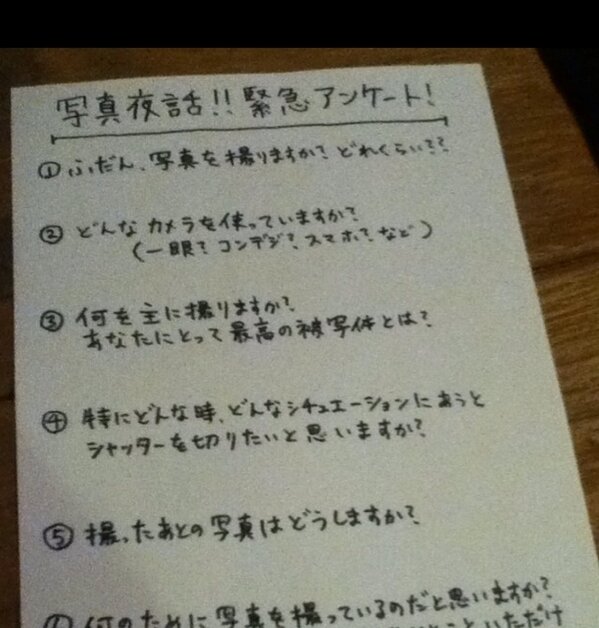 写真夜話!!緊急アンケート!
①ふだん、写真を撮りますか?どれくらい??
②どんなカメラを使っていますか?
(一眼?コンデジ?スマホ?など)
③何を主に撮りますか?
あなたにとって最高の被写体とは?
④特にどんな時、どんなシチュエーションにあうと
シャッターを切りたいと思いますか?
⑤撮ったあとの写真はどうしますか?
何のために写真を撮っているのだと思いますか?
いただけ